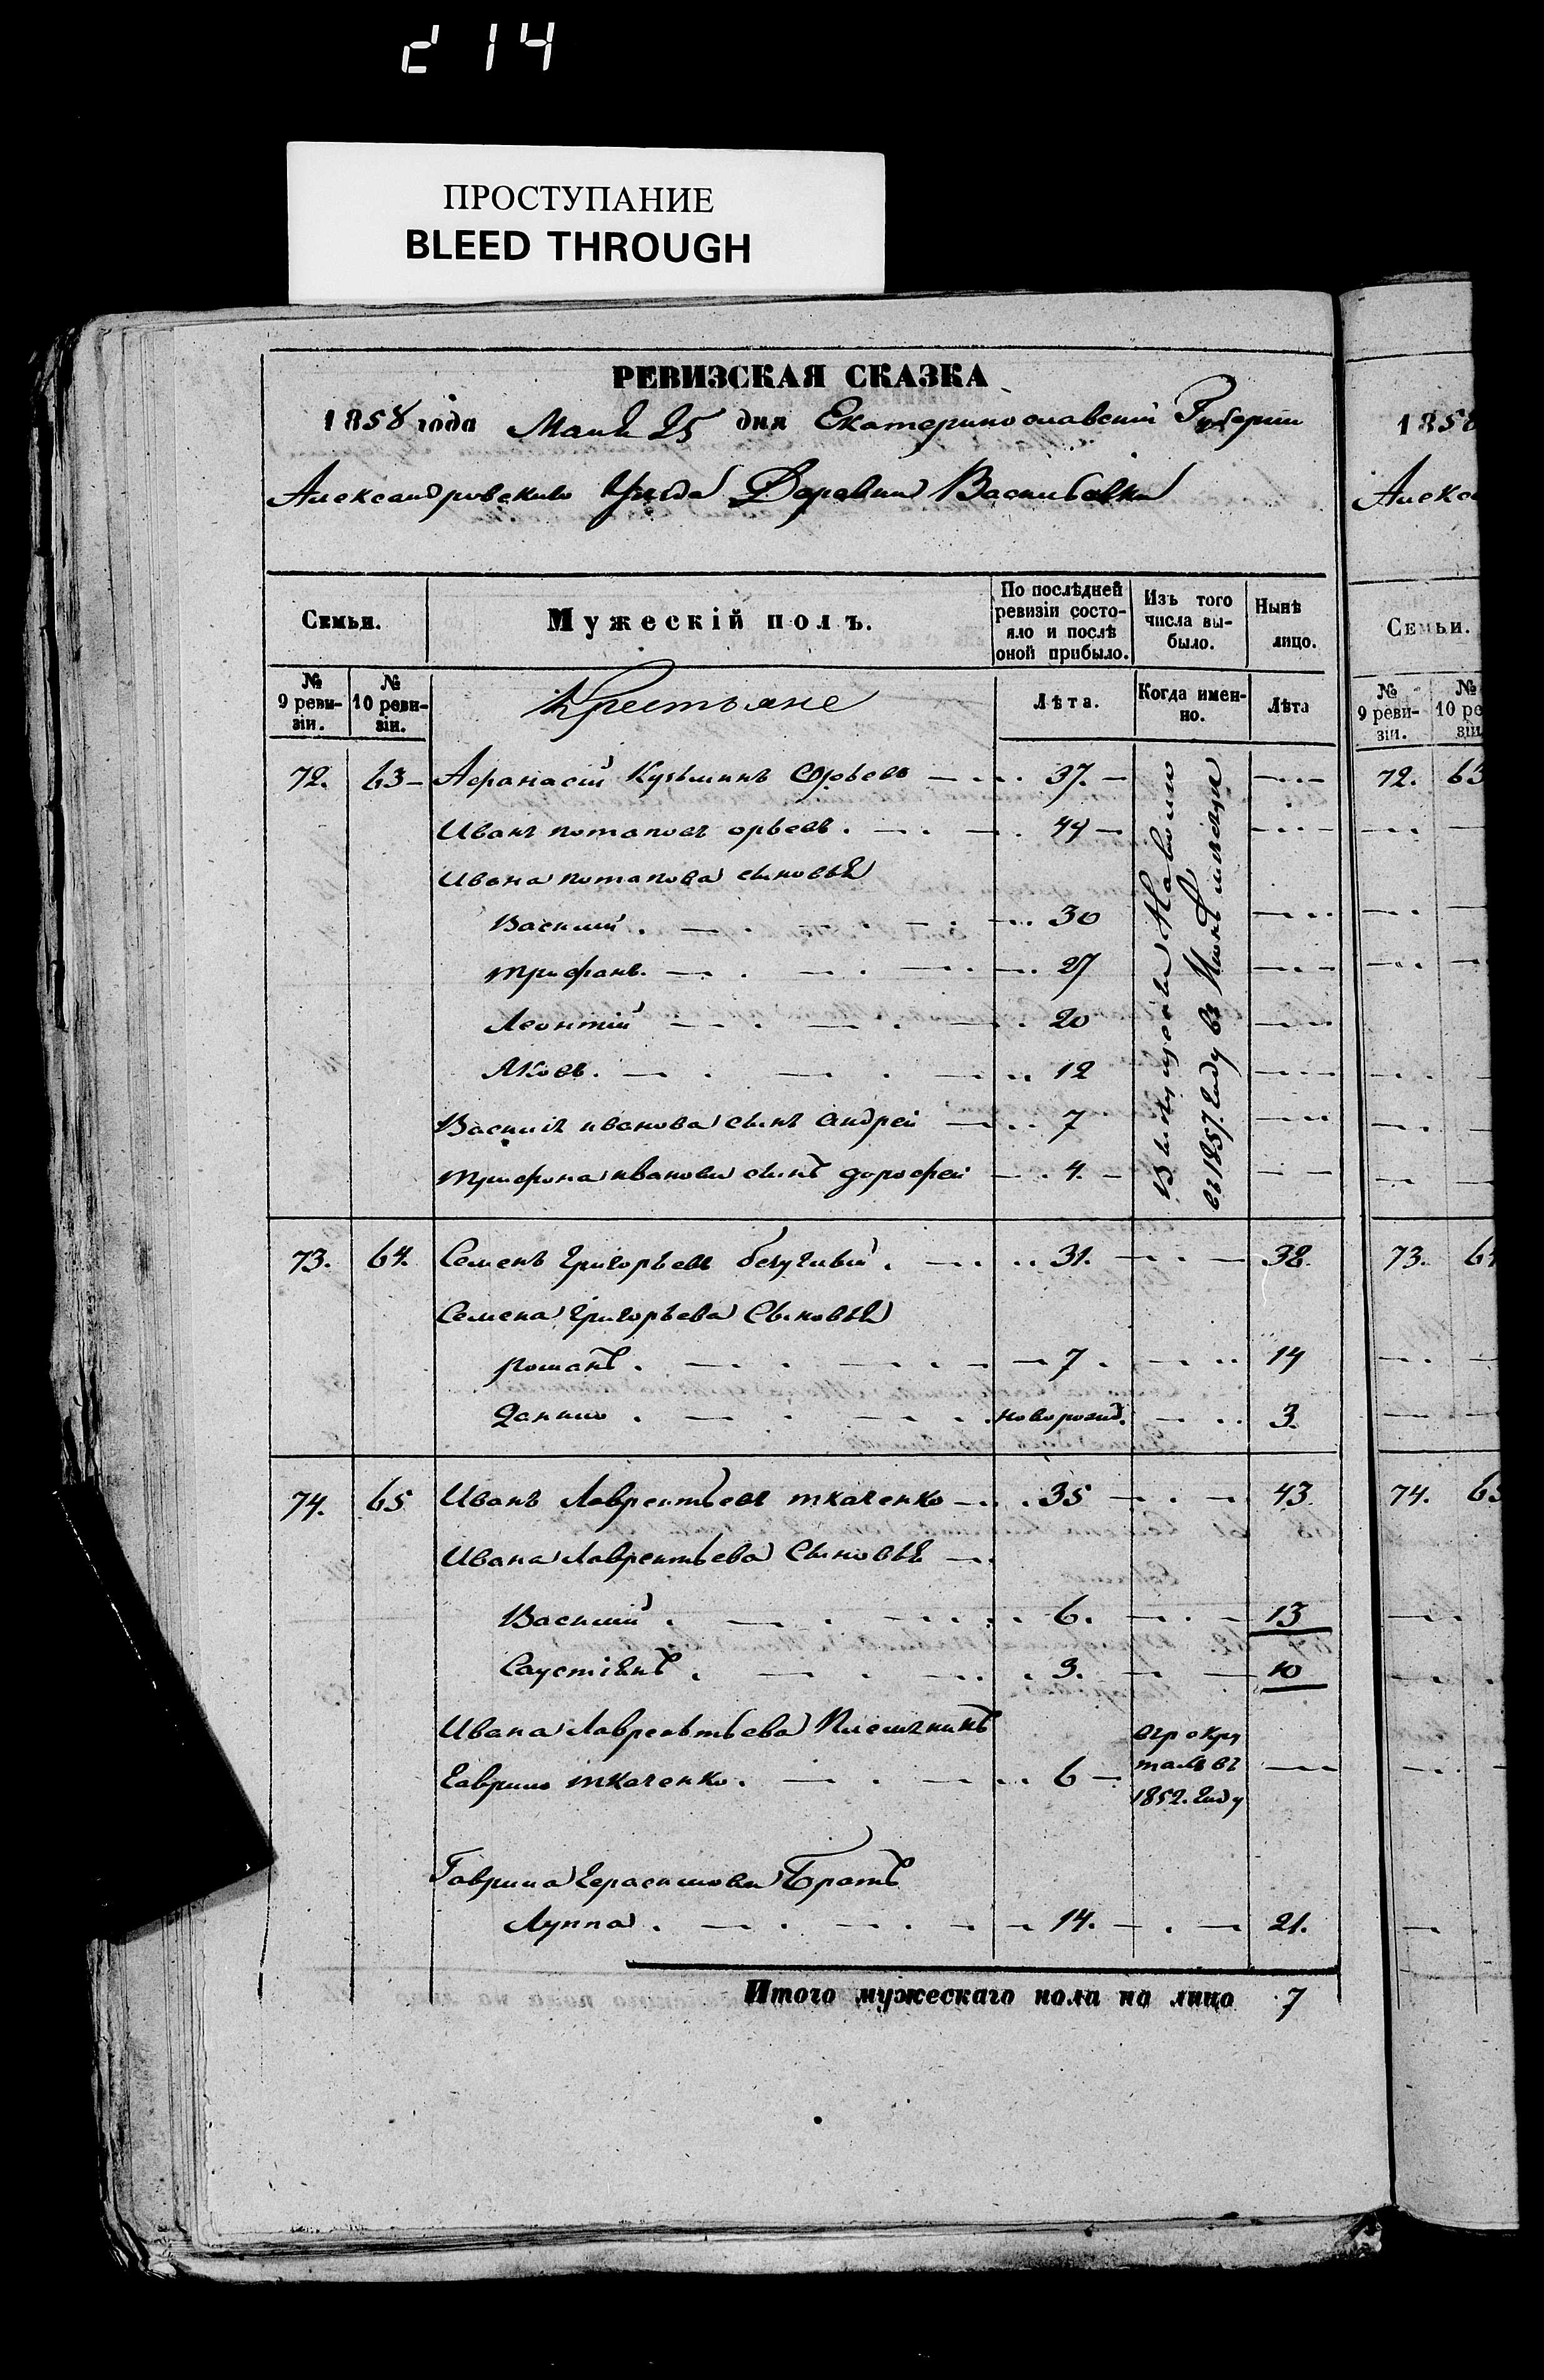 214
ПРОСТУПАНИЕ
BLEED THROUGH
РЕВИЗСКАЯ СКАЗКА
1858 года Маія 25 дня Екатеринославской Губерніи
Александровскаго Уезда Деревни Васильевки
Семьи. Мужескій полъ. По послѣдней ревизіи состояло и послѣ оной прибыло. Изъ того числа выбыло. Нынѣ на лицо.
№ 9 ревизіи. № 10 ревизіи. Крестьяне Лѣта. Когда именно. Лѣта
72. 63 Афанасій Кузьминъ 37.
Иванъ потаповъ 44
Ивана потапова сыновья
Василій 30
трифанъ 27
Леонтій 20
Яковъ 12
Василія иванова сынъ андрей 7
трифона иванова сынъ дорофей 4.
въ 1857. году въ
73. 64. Семенъ григорьевъ 31. 38.
Семена григорьева Сыновья
романъ 7 14
данило новорожд. 3.
74. 65 Иванъ Лаврентьевъ ткаченко 35 43.
Ивана Лаврентьева Сыновья
Василій 6. 13
3. 10
Ивана Лаврентьева Племянникъ
гаврило ткаченко 6
въ рекруты въ 1852. году
Гаврила герасимова Братъ
Луппа 14. 21.
Итого мужескаго пола на лицо 7
1858
Алекс
Семьи.
№ 9 ревизіи. № 10 ре зіи
72. 63
73. 64
74. 65